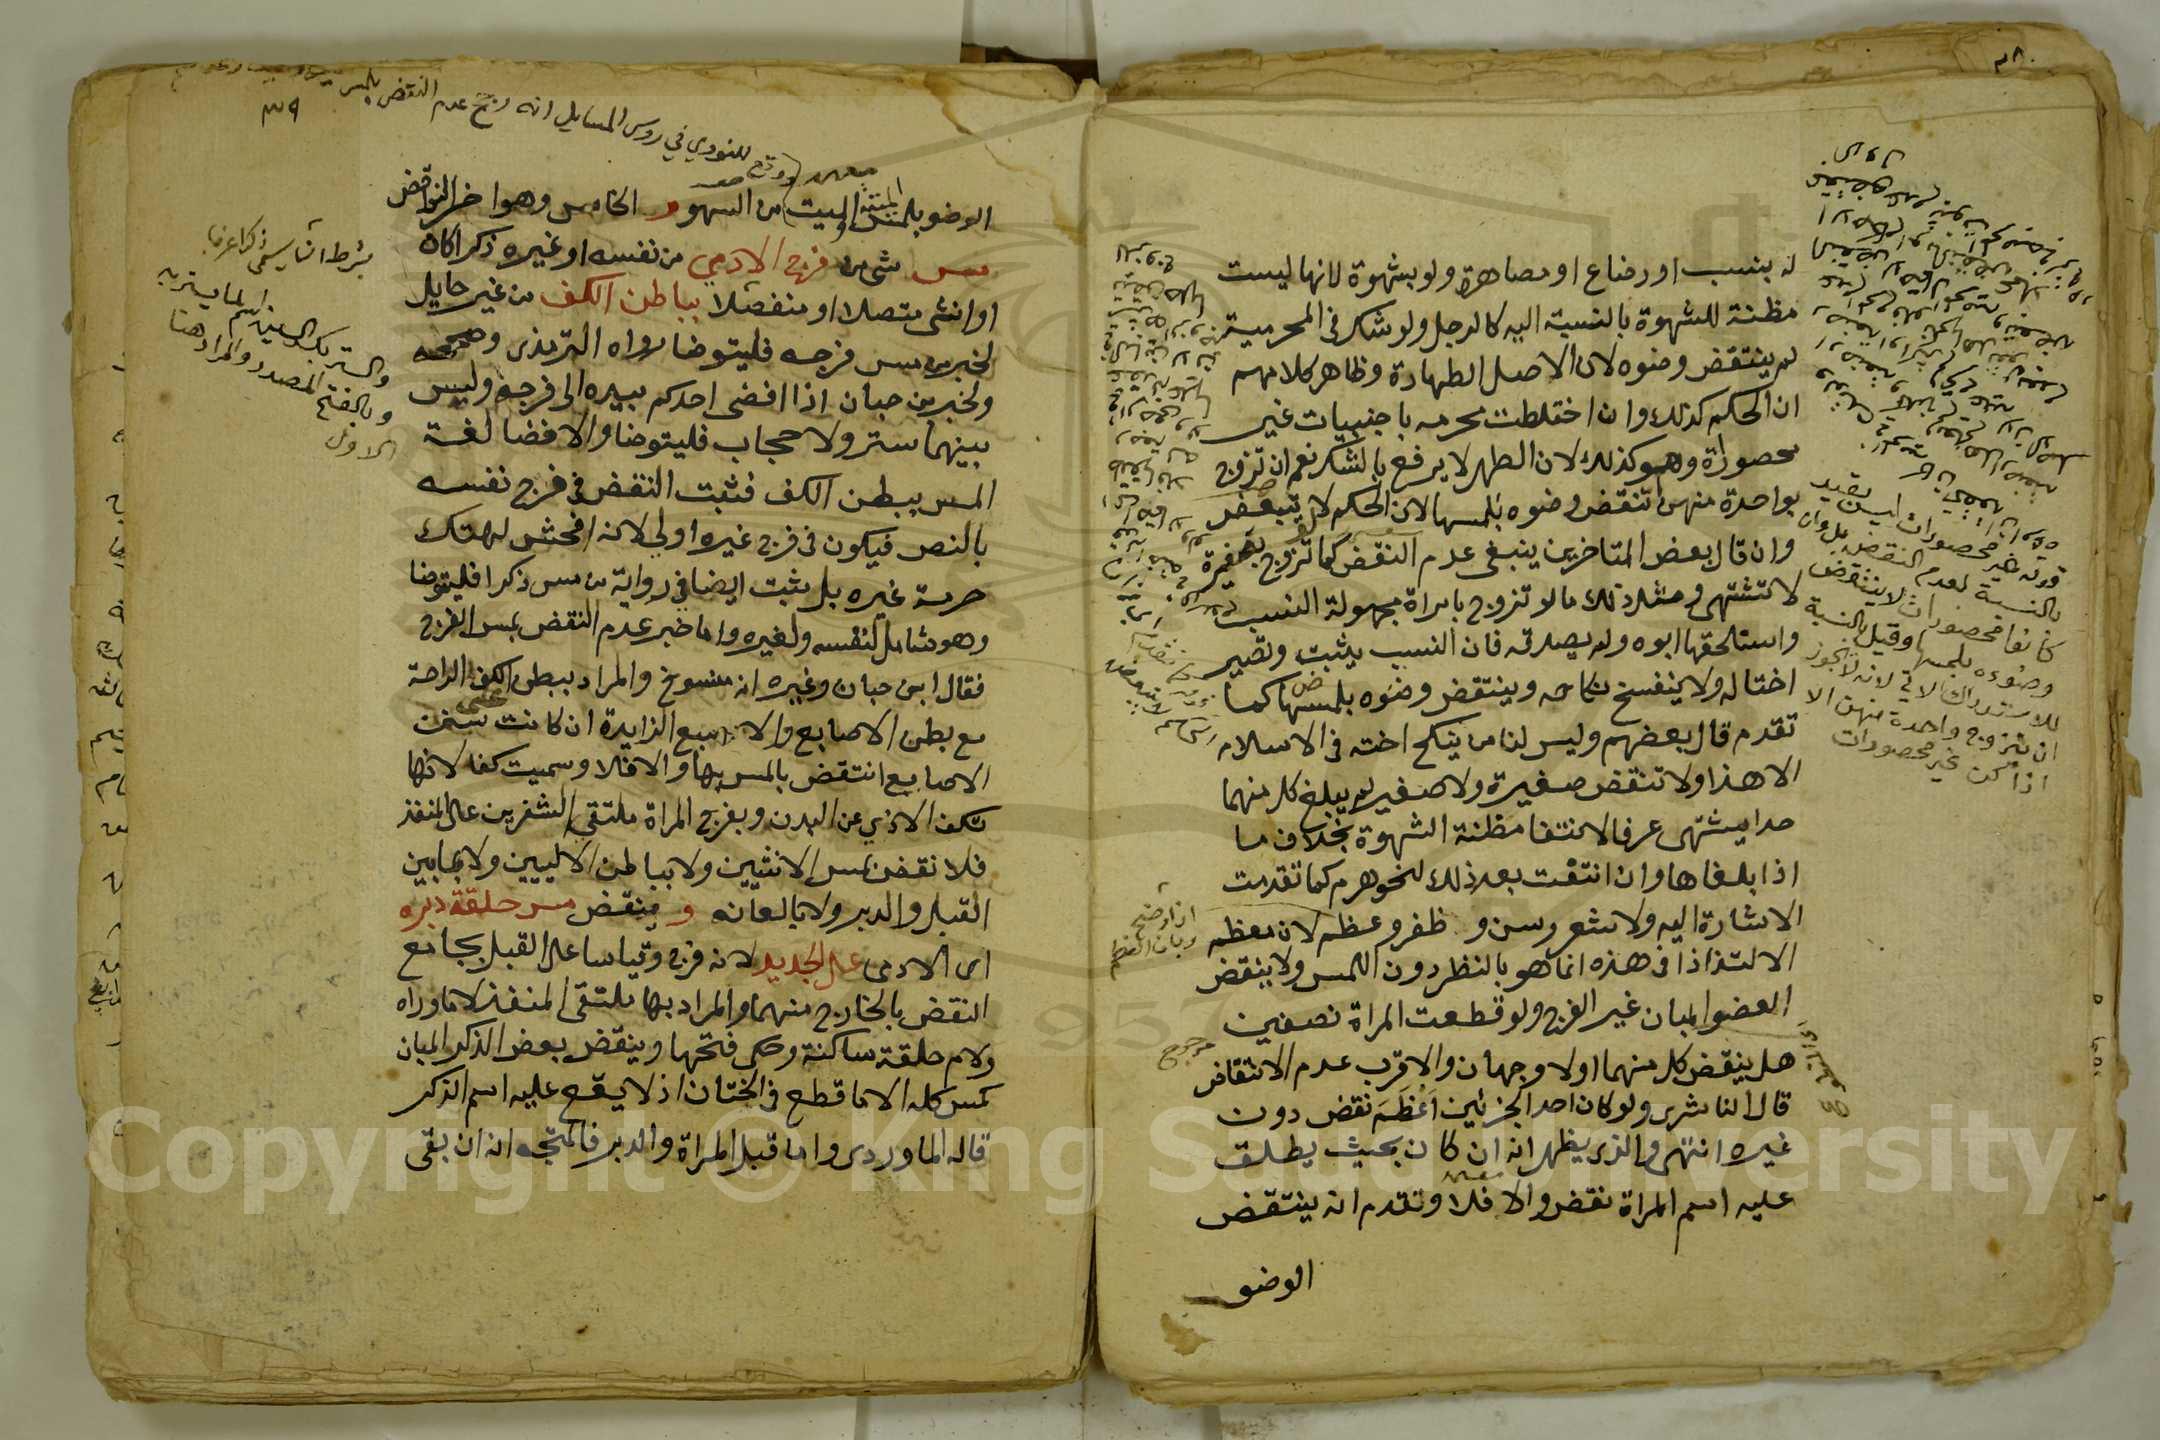 له بنسب او رضاع او مصاهرة ولو بشهوة لانها ليست
مظنة للشهوة بالنسبة اليه كالرجل ولو شك في المحرمية
لم ينتقض وضوه لان الاصل الطهارة وظاهر كلامهم
ان الحكم كذلك وان اختلطت محرمه باجنبيات غير
محصورات وهو كذلك لان الطهر لا يرفع بالشك نعم ان تزوج
بواحدة منهن انتقض وضوه بلمسها لان الحكم لا يتبعض
وان قال بعض المتاخرين ينبغي عدم النقض كما تزوج بصغيرة
لا تشتهى ومثل ذلك ما لو تزوج بامراة مجهولة النسب
واستلحقها ابوه ولم يصدقه فان النسب يثبت وتصير
اختا له ولا ينفسخ نكاحه وينتقض وضوه بلمسها كما
تقدم قال بعضهم وليس لنا من ينكح اخته في الاسلام
الا هذا ولا تنقض صغيرة ولا صغير لم يبلغ كل منهما
حدا يشتهى عرفا لانتفا مظنة الشهوة بخلاف ما
اذا بلغاها وان انتفت بعد ذلك لنحو هرم كما تقدمت
الاشارة اليه ولا شعر وسن و ظفر وعظم لان معظم
الالتذاذ في هذه انما هو بالنظر دون اللمس ولا ينقض
العضو المبان غير الفرج ولو قطعت المراة نصفين
هل ينقض كل منهما اولا وجهان والاقرب عدم الانتقاض
قال الناشري ولو كان احد الجزئين اعظم نقض دون
غيره انتهى والذي يظهر انه ان كان بحيث يطلق
عليه اسم المراة نقض والا فلا وتقدم انه ينتقض
الوضو
قوله غير محصورات ليس بقيد
بالنسبة لعدم النقض بل وان
كانوا محصورات لا ينتقض
وضوءه بلمسها وقيل بالنسبة
للاستدراك الاتي لانه لا يجوز
ان يتزوج واحدة منهن الا
اذا كن غير محصورات
مرجوح
٣٩
للنووي في روس المسايل انه رجح عدم النقض بلمس
الوضو بلمس الميت من السهو و الخامس وهو اخر النواقض
مس شي من فرج الادمي من نفسه او غيره ذكرا كان
او انثى متصلا او منفصلا بباطن الكف من غير حايل
لخبر من مس فرجه فليتوضا رواه الترمذي وصححه
ولخبر بن حبان اذا افضى احدكم بيده الى فرجه وليس
بينهما ستر ولا حجاب فليتوضا والافضا لغة
المس ببطن الكف فثبت النقض في فرج نفسه
بالنص فيكون في فرج غيره اولى لانه افحش لهتك
حرمة غيره بل يثبت ايضا في رواية من مس ذكرا فليتوضا
وهو شامل لنفسه ولغيره واما خبر عدم النقض بمس الفرج
فقال ابن حبان وغيره انه منسوخ والمراد ببطن الكف الراحة
مع بطن الاصابع والاصبع الزايدة ان كانت على سنن
الاصابع انتقض بالمس بها والا فلا وسميت كفا لانها
تكف الاذى عن البدن وبفرج المراة ملتقى الشفرين على المنفذ
فلا نقض بمس الانثيين ولا بباطن الاليين ولا بما بين
القبل والدبر ولا بالعانه و ينقض مس حلقة دبره
اى الادمى على الجديد لانه فرج وقياسا على القبل بجامع
النقض بالخارج منهما والمراد بها ملتقى المنفذ لا ما وراه
ولام حلقة ساكنة وحكى فتحها وينقض بعض الذكر المبان
كمس كله الا ما قطع في الختان اذ لا يقع عليه اسم الذكر
قاله الماوردي واما قبل المراة والدبر فالمتجه انه ان بقى
والستر بكسر السين اسم لما يستر به
وبالفتح المصدر والمراد هنا
الاول
Copyright © King Saud University